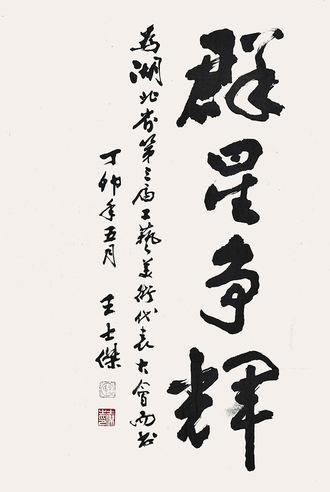 群星争辉
为湖北省第三届工艺美術代表大會而书
丁卯年五月 王士傑